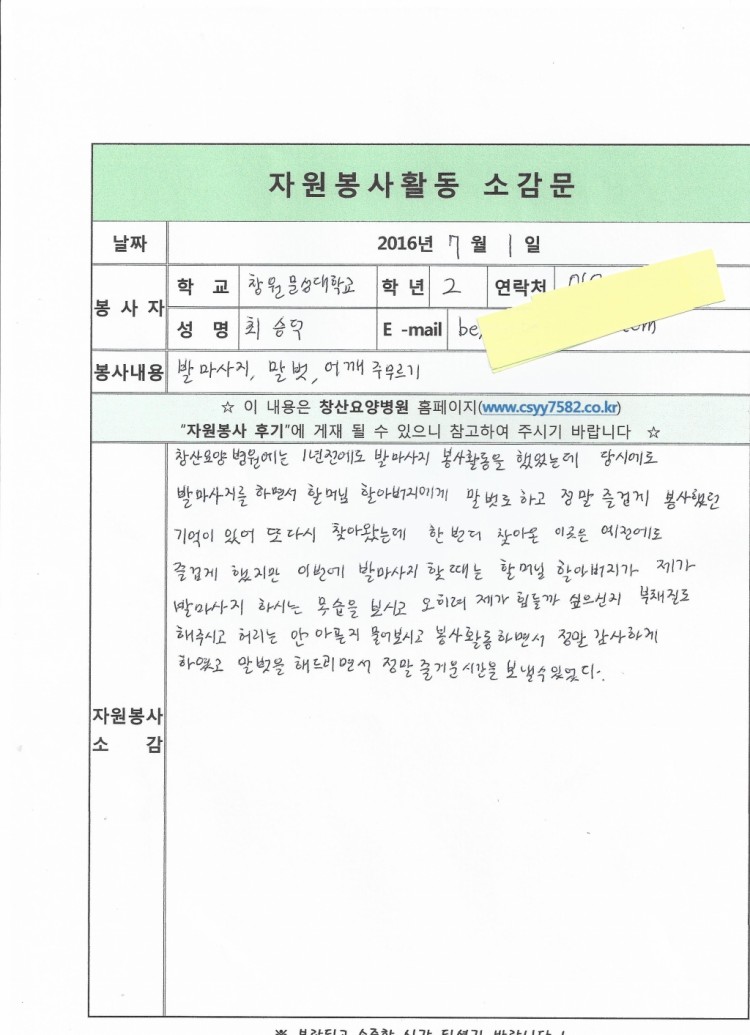 자원봉사활동 소감문
날짜 2016년 7 월 1 일
봉 사 자 학 교 창원문성대학교 학 년 2 연락처
성 명 최 승덕 E -mail be
봉사내용 발마사지, 말벗, 어깨 주무르기
☆ 이 내용은 창산요양병원 홈페이지(www.csyy7582.co.kr)
"자원봉사 후기"에 게재 될 수 있으니 참고하여 주시기 바랍니다 ☆
자원봉사 소 감
창산요양 병원에는 1년전에도 발마사지 봉사활동을 했었는데 당시에도
발마사지를 하면서 할머님 할아버지에게 말벗도 하고 정말 즐겁게 봉사했던
기억이 있어 또다시 찾아왔는데 한 번더 찾아온 이곳은 예전에도
즐겁게 했지만 이번에 발마사지 할때는 할머님 할아버지가 제가
발마사지 하시는 모습을 보시고 오히려 제가 힘들까 싶으신지 부채질도
해주시고 허리는 안 아픈지 물어보시고 봉사활동하면서 정말 감사하게
하였고 말벗을 해드리면서 정말 즐거운 시간을 보낼수있었다.